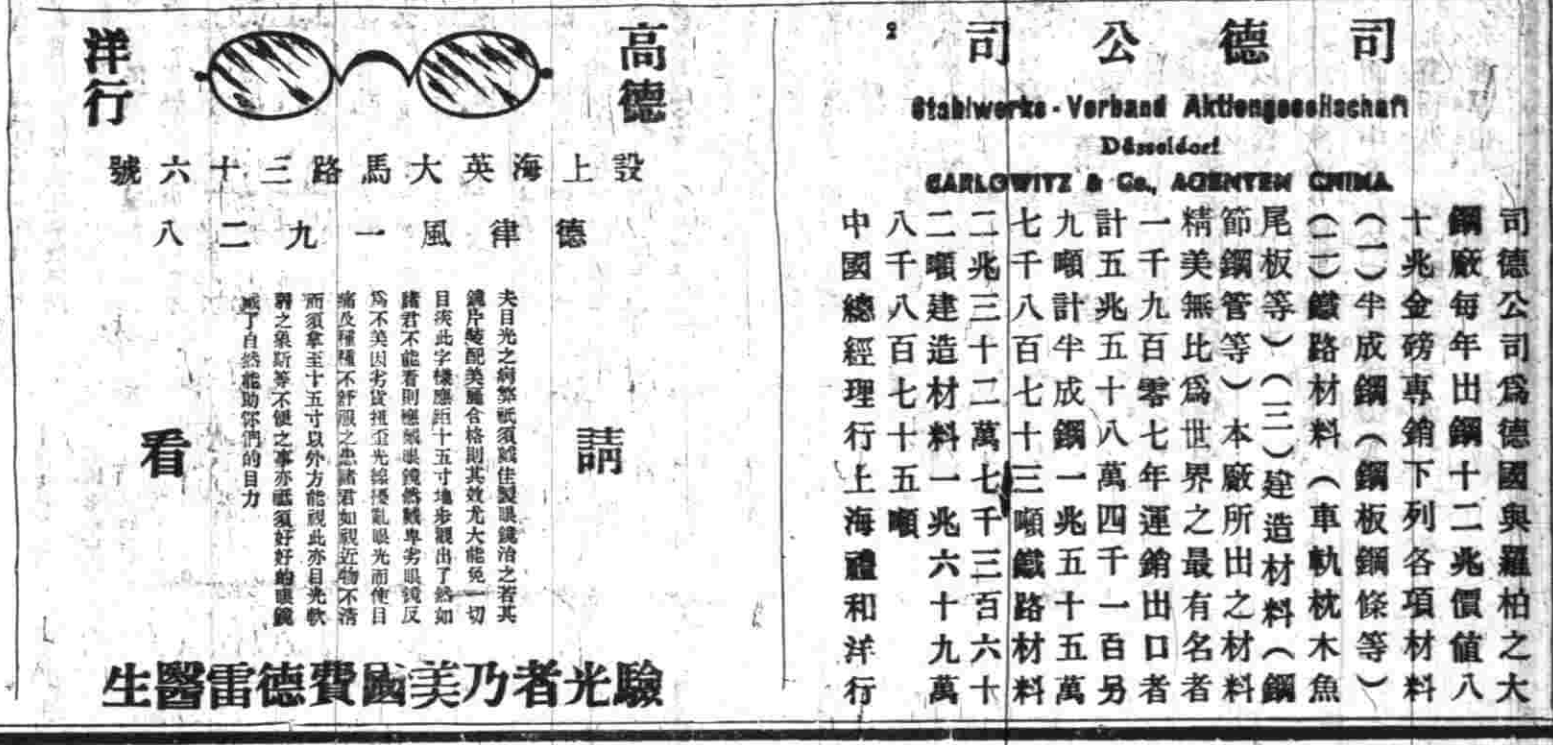 司德公司
2
Stahlwerks-Verband Aktiengesellschaft
Düsseldorf
CARLOWITZ & Co., AGENTEN CHINA
司德公司爲德國與羅柏之大
鋼廠每年出鋼十二兆價值八
十兆金磅專銷下列各項材料
(一)半成鋼(鋼板鋼條等)
(二)鐵路材料(車軌枕木魚
尾板等)(三)建造材料(鋼
節鋼管等)本廠所出之材料
精美無比爲世界之最有名者
一千九百零七年運銷出口者
計五兆五十八萬四千一百另
九噸計半成鋼一兆五十五萬
七千八百七十三噸鐵路材料
二兆三十二萬七千三百六十
二噸建造材料一兆六十九萬
八千八百七十五噸
中國總經理行上海禮和洋行
高德
洋行
設上海英大馬路三十六號
德律風一九二八
請
夫目光之病弊祇須戴佳製眼鏡治之若其
鏡片裝配美麗合格則其效尤大能免一切
目疾此字樣應距十五寸地步觀出了然如
諸君不能看則應戴眼鏡然戴卑劣眼鏡反
爲不美因劣貨扭歪光線擾亂眼光而使目
痛及種種不舒服之患諸君如視近物不清
而須拿至十五寸以外方能視此亦目光軟
弱之象斯等不便之事亦祇須好好的眼鏡
戴了自然能助你們的目力
看
驗光者乃美國費德雷醫生